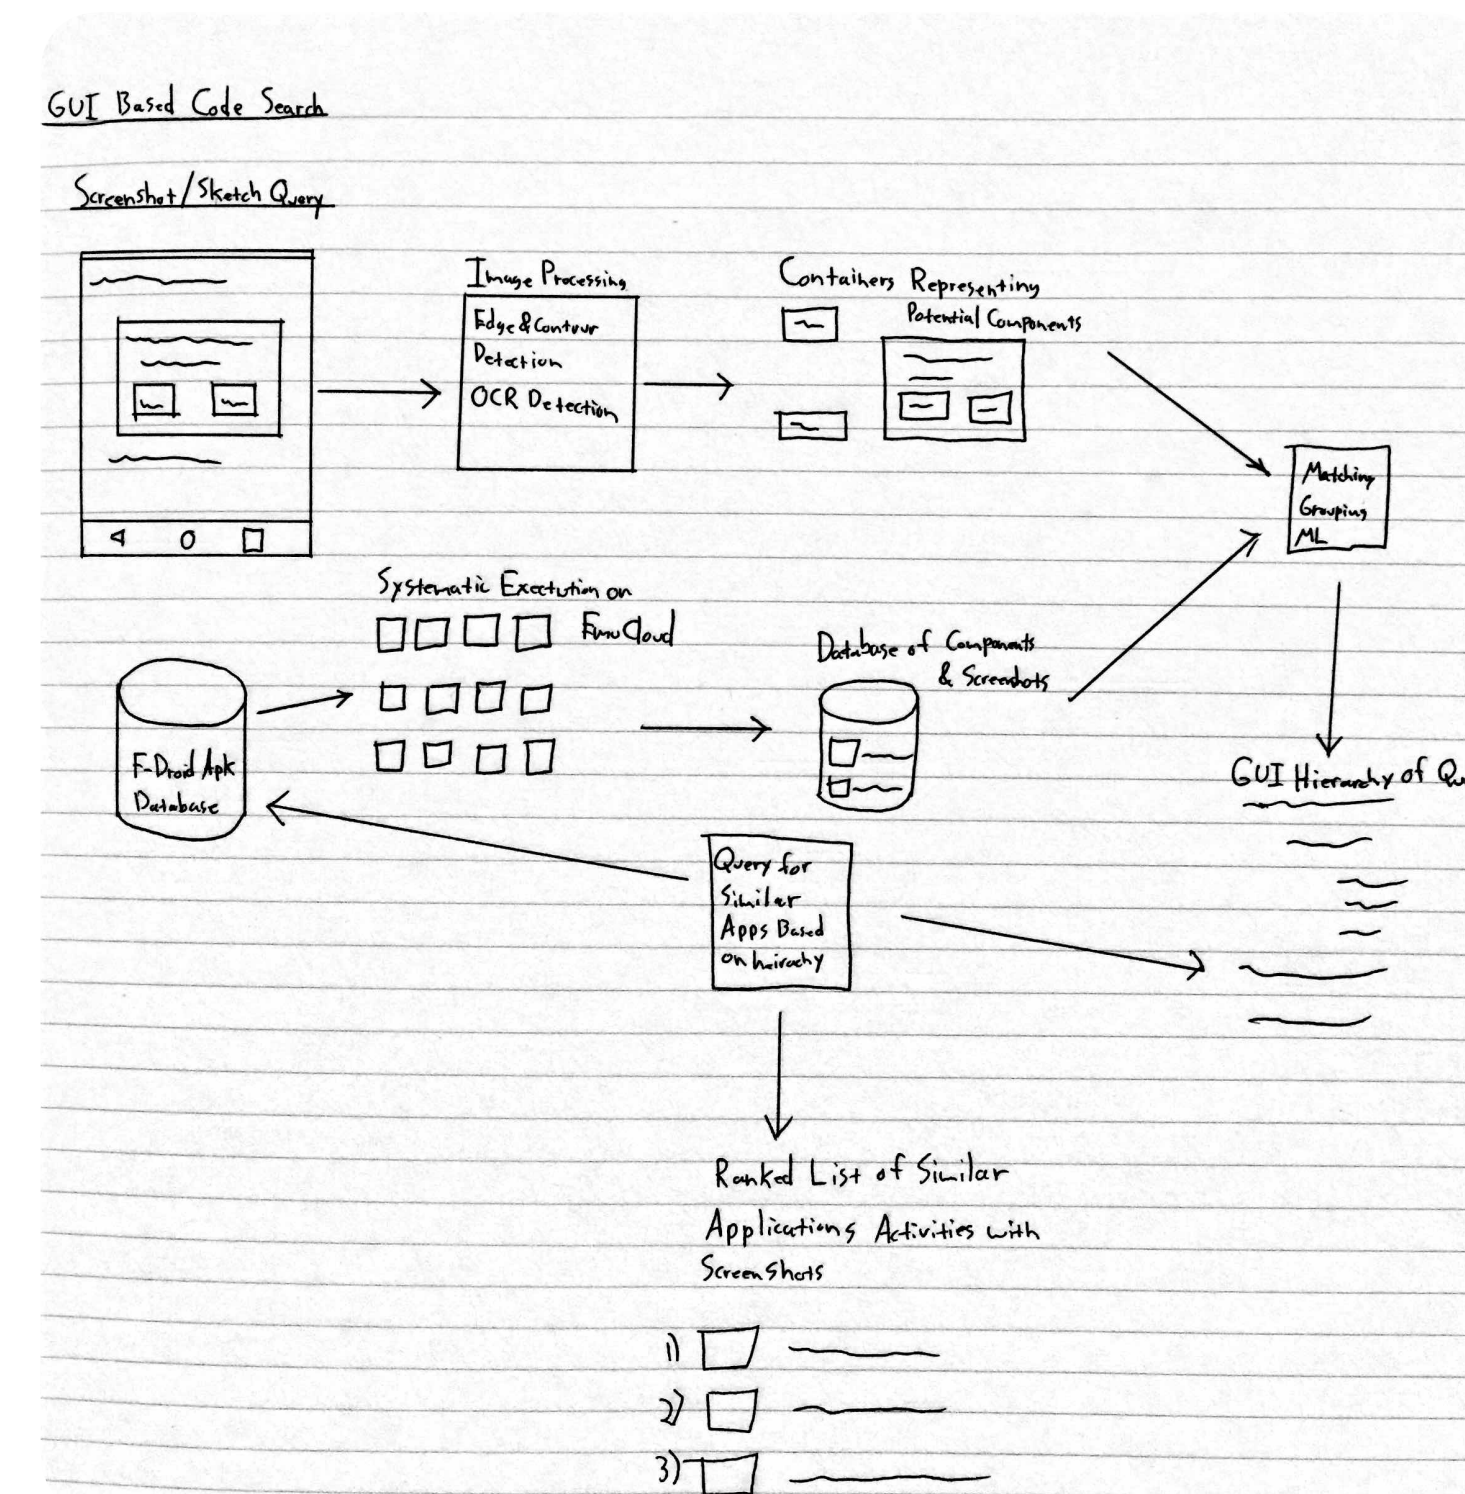 GUI Based Code Search
Screenshot/Sketch Query
Image Processing
Edge & Contour
Detection
OCR Detection
Containers Representing
Potential Components
Matching
Grouping
ML
Systematic Exectution on
EmuCloud
F-Droid Apk
Database
Database of Components
& Screenshots
GUI Hierarchy of Qu
Query for
Similar
Apps Based
on heirachy
Ranked List of Similar
Applications Activities with
Screenshots
1)
2)
3)